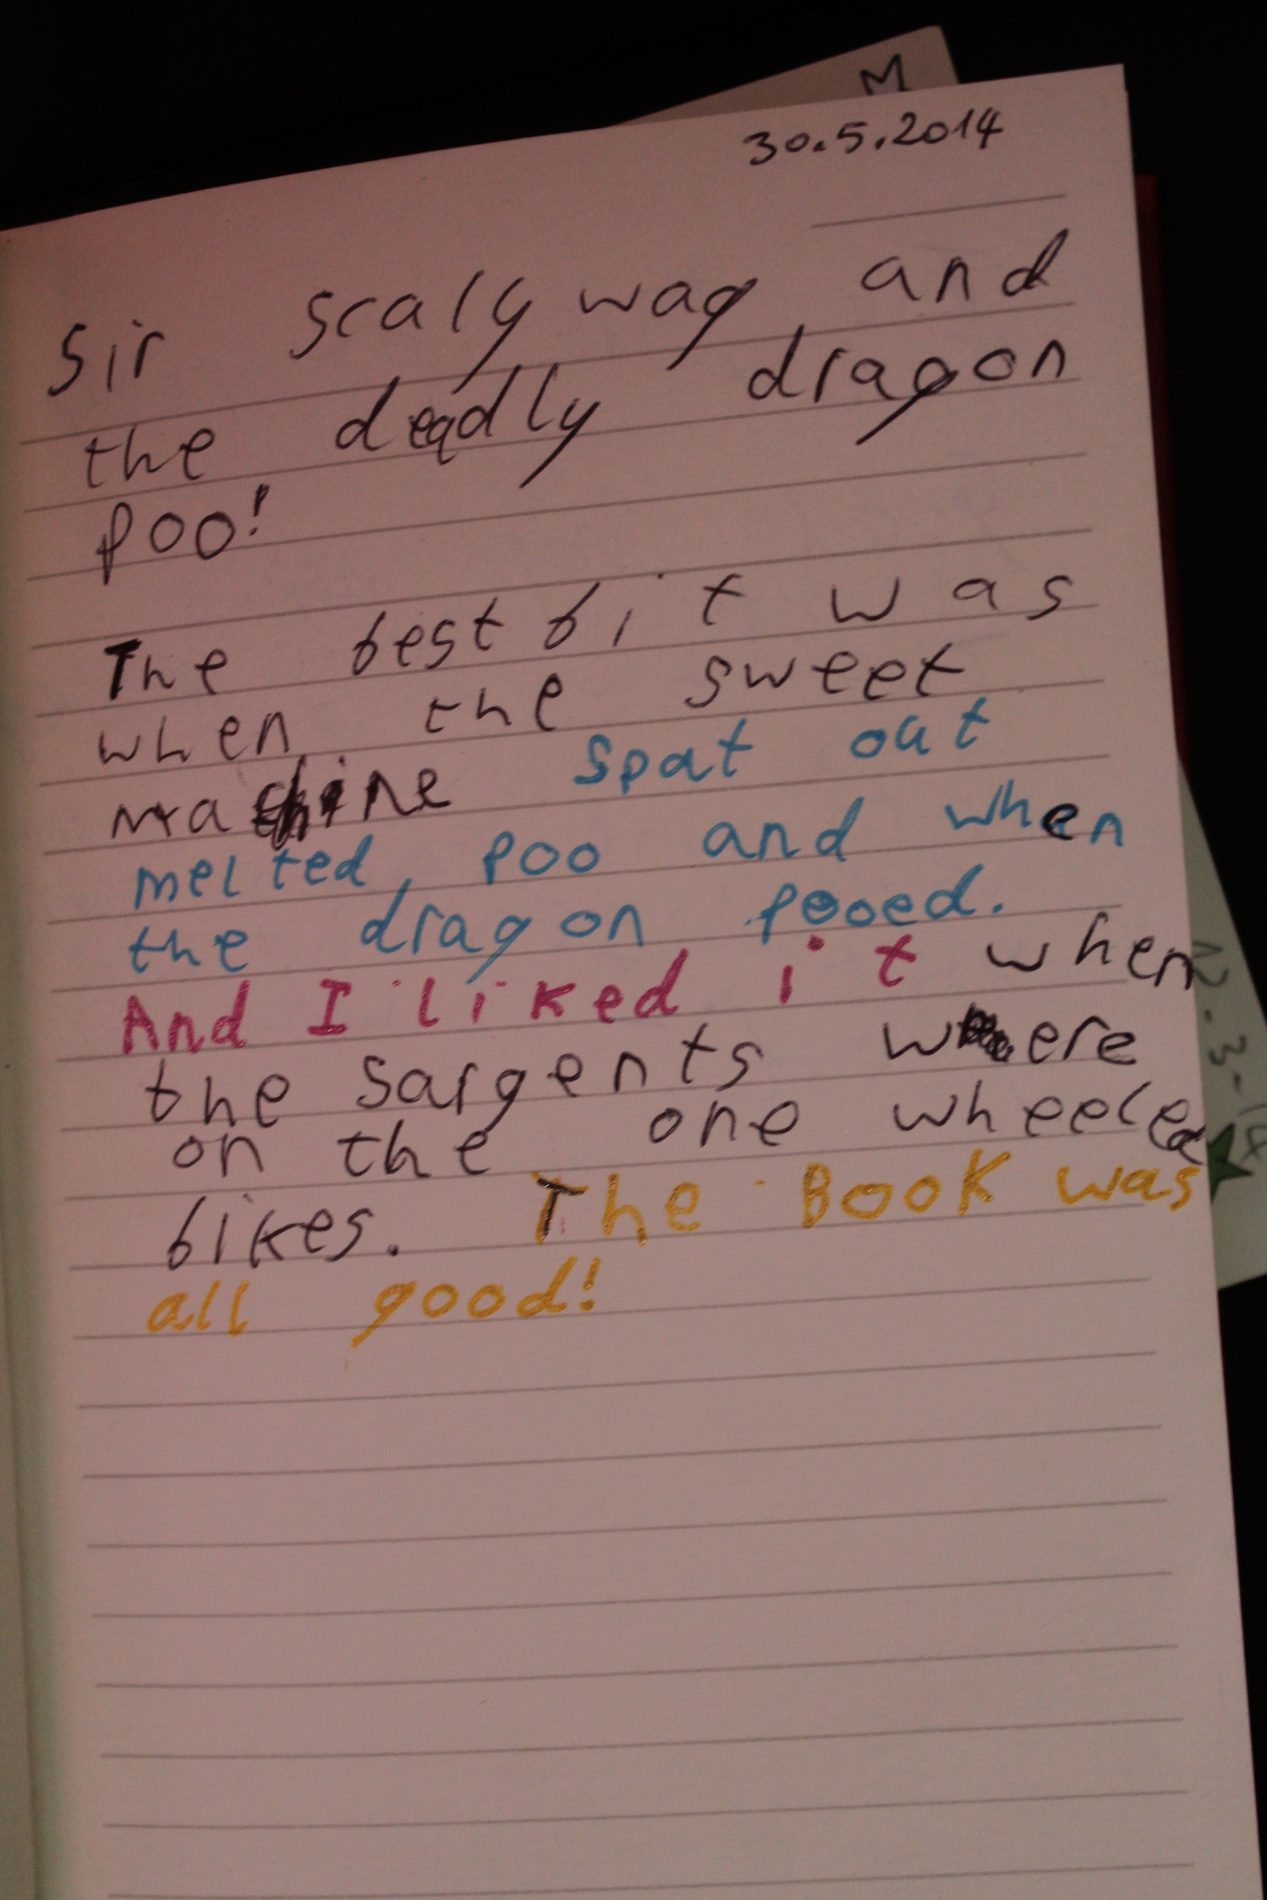 M
30.5.2014
Sir scalywag and
the deadly dragon
poo!
The best bit was
when the sweet
machine spat out
melted poo and when
the dragon pooed.
And I liked it when
the sargents where
on the one wheeled
bikes. The Book was
all good!